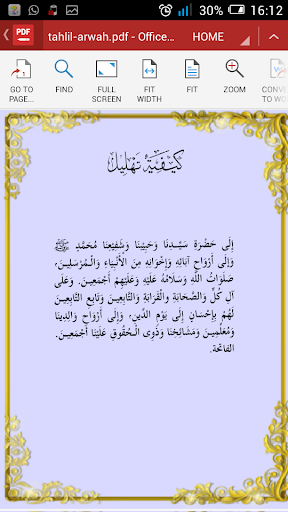 30% 16:12
tahlil-arwah.pdf - Office... HOME
PDF
GO TO PAGE...
FIND
FULL SCREEN
FIT WIDTH
FIT
ZOOM
CONVE TO WO
كَيْفِيَّةُ تَهْلِيْل
إِلَى حَضْرَةِ سَيِّدِنَا وَحَبِيْبِنَا وَشَفِيْعِنَا مُحَمَّدٍ ﷺ
وَإِلَى أَرْوَاحِ آبَائِهِ وَإِخْوَانِهِ مِنَ الْأَنْبِيَاءِ وَالْمُرْسَلِيْنَ،
صَلَوَاتُ اللهِ وَسَلَامُهُ عَلَيْهِ وَعَلَيْهِمْ أَجْمَعِيْنَ. وَعَلَى
آلِ كُلٍّ وَالصَّحَابَةِ وَالْقَرَابَةِ وَالتَّابِعِيْنَ وَتَابِعِ التَّابِعِيْنَ
لَهُمْ بِإِحْسَانٍ إِلَى يَوْمِ الدِّيْنِ، وَإِلَى أَرْوَاحِ وَالِدِيْنَا
وَمُعَلِّمِيْنَ وَمَشَائِخِنَا وَذَوِى الْحُقُوْقِ عَلَيْنَا أَجْمَعِيْنَ.
الفَاتحة.